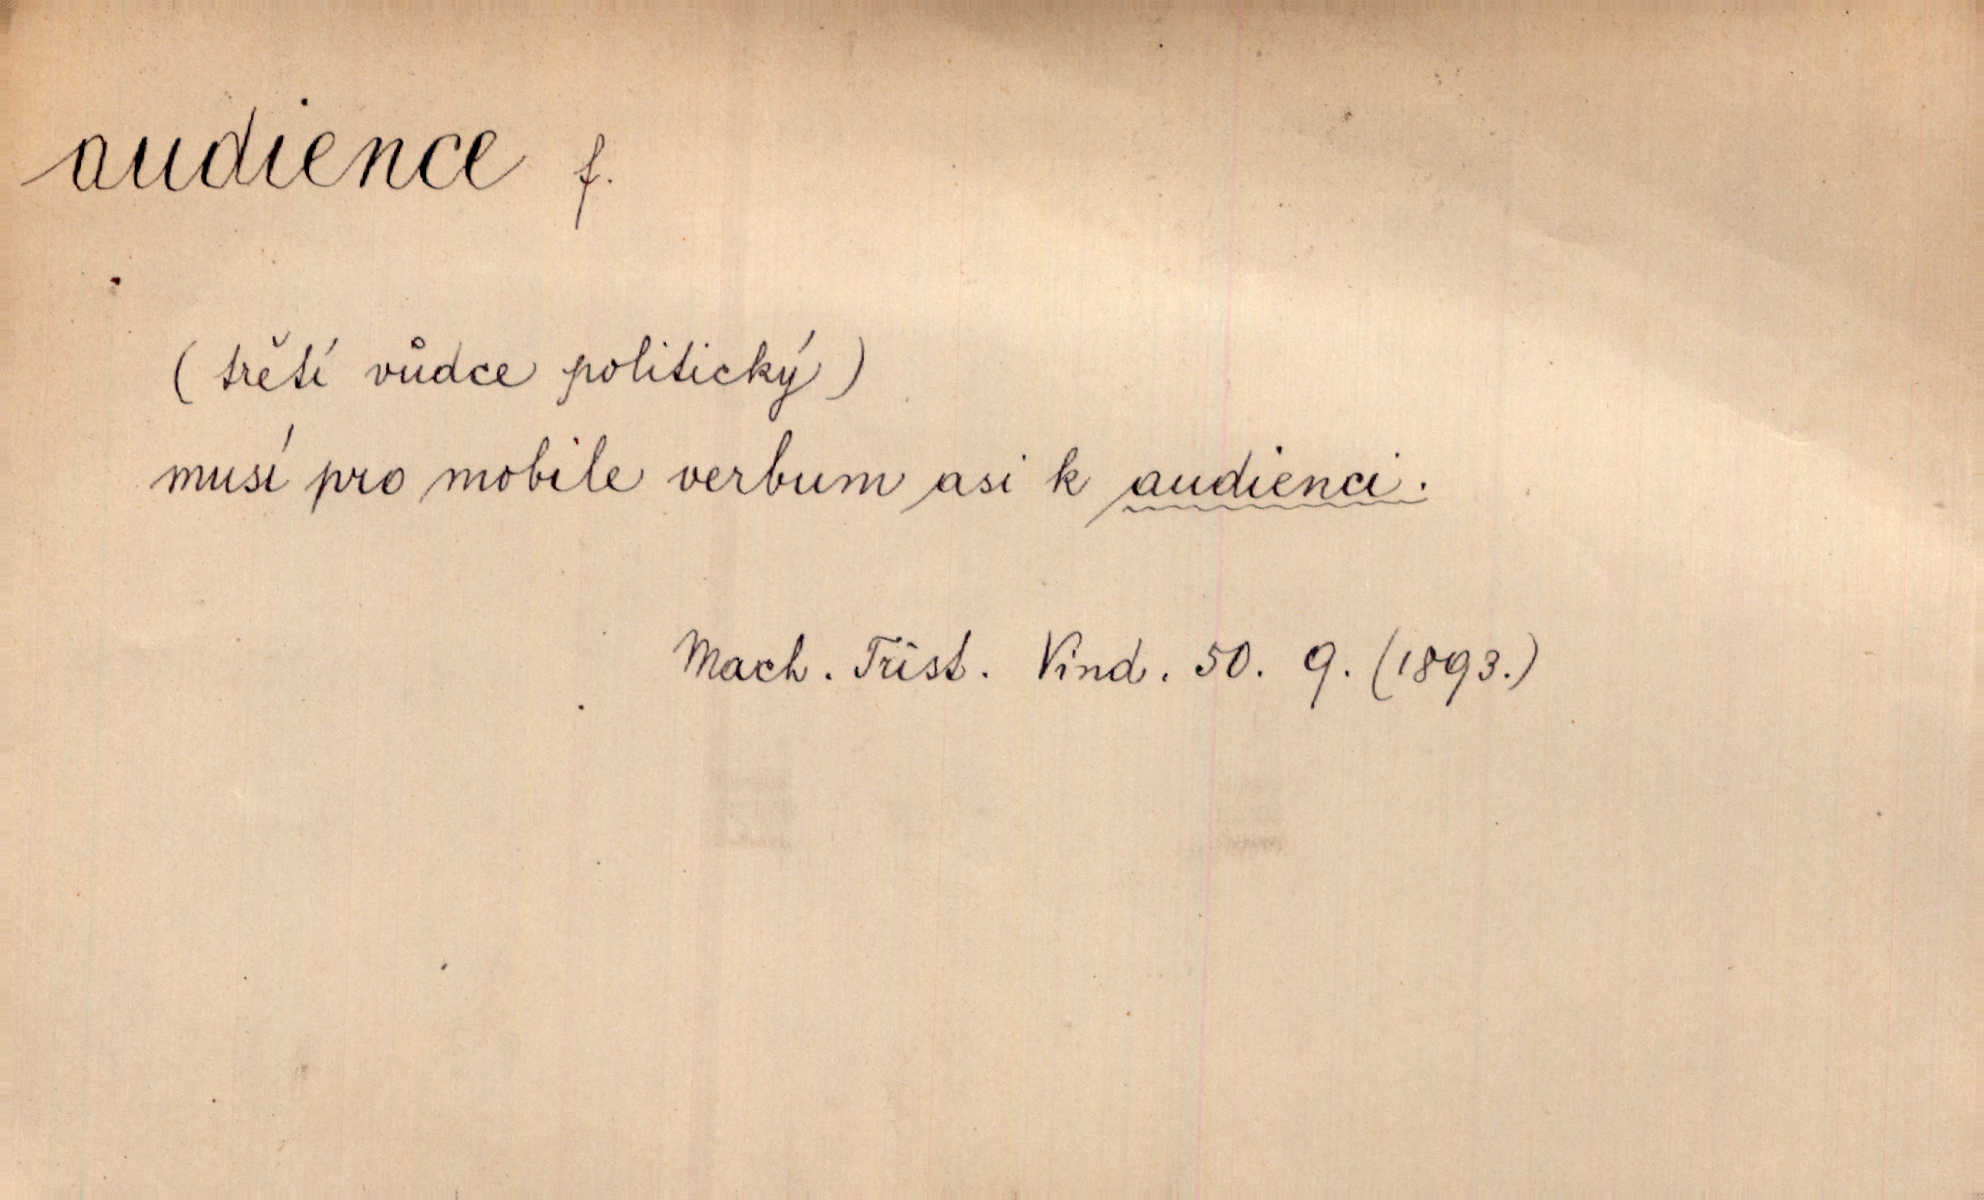 audience f.
(třetí vůdce politický)
musí pro mobile verbum asi k audienci.
Mach. Trist. Vind. 50. 9. (1893.)